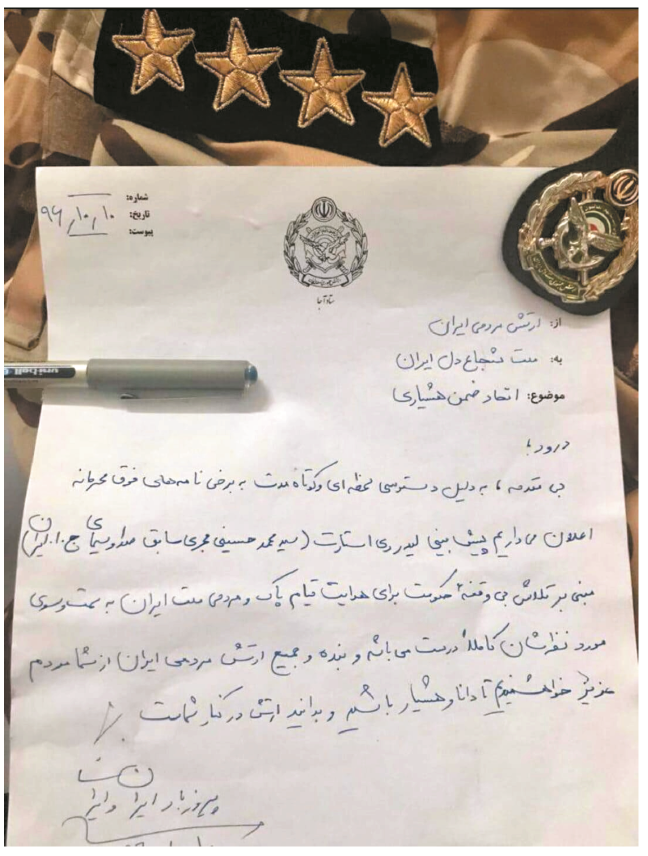 شماره:
تاریخ: ۹۶/۱۰/۱۰
پیوست:
ستاد آجا
از: ارتش مردمی ایران
به: ملت شجاع دل ایران
موضوع: اتحاد ضمن هشیاری
درود؛
بی مقدمه، به دلیل دسترسی لحظه ای و کوتاه مدت به برخی نامه های فوق محرمانه
اعلان می داریم پیش بینی لیدر ری استارت (سید محمد حسینی مجری سابق صدا و سیمای ج.ا.ایران)
مبنی بر تلاش بی وقفهٔ حکومت برای هدایت قیام پاک و مردمی ملت ایران به سمت و سوی
مورد نظرشان کاملاً درست می باشد و بنده و جمیع ارتش مردمی ایران از شما مردم
عزیز خواهشمندیم تا دانا و هشیار باشیم و بدانید ارتش در کنار شماست
پیروز باد ایران و ایرانی
uni-ball